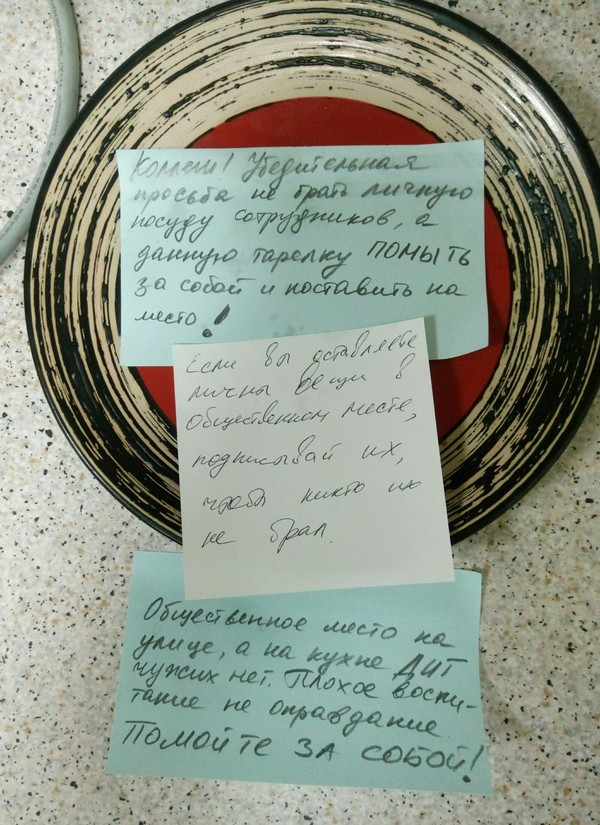 Коллеги! Убедительная
просьба не брать личную
посуду сотрудников, а
данную тарелку ПОМЫТЬ
за собой и поставить на
место!
Если вы оставляете
личны вещи в
общественном месте,
подписывай их,
чтобы никто их
не брал.
Общественное место на
улице, а на кухне ДИТ
чужих нет. Плохое воспи-
тание не оправдание.
ПОМОЙТЕ ЗА СОБОЙ!